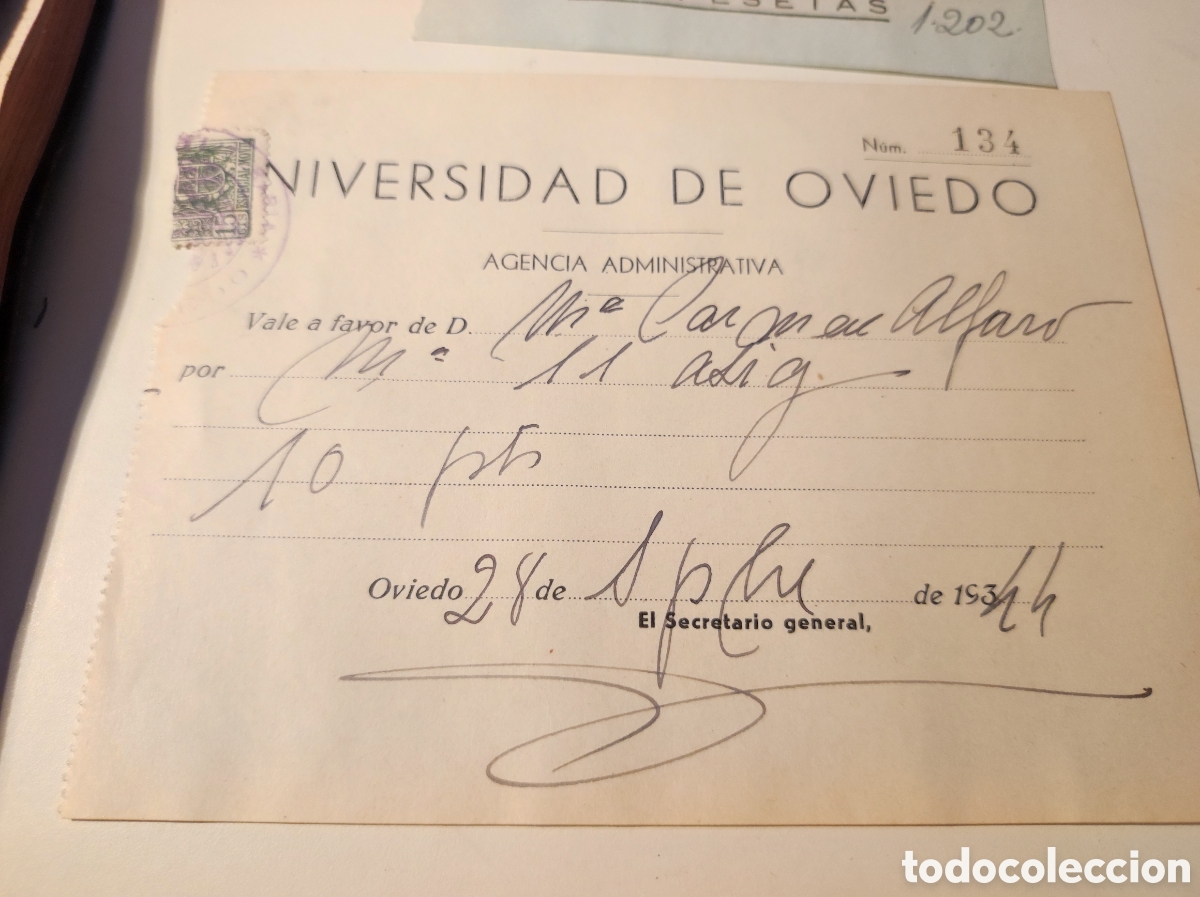 PESETAS 1.202
Núm. 134
NIVERSIDAD DE OVIEDO
AGENCIA ADMINISTRATIVA
Vale a favor de D. Mª Carmen Alfaro
por Mª 11 asig
10 pts
Oviedo 28 de Spbre de 19344
El Secretario general,
15
todocoleccion